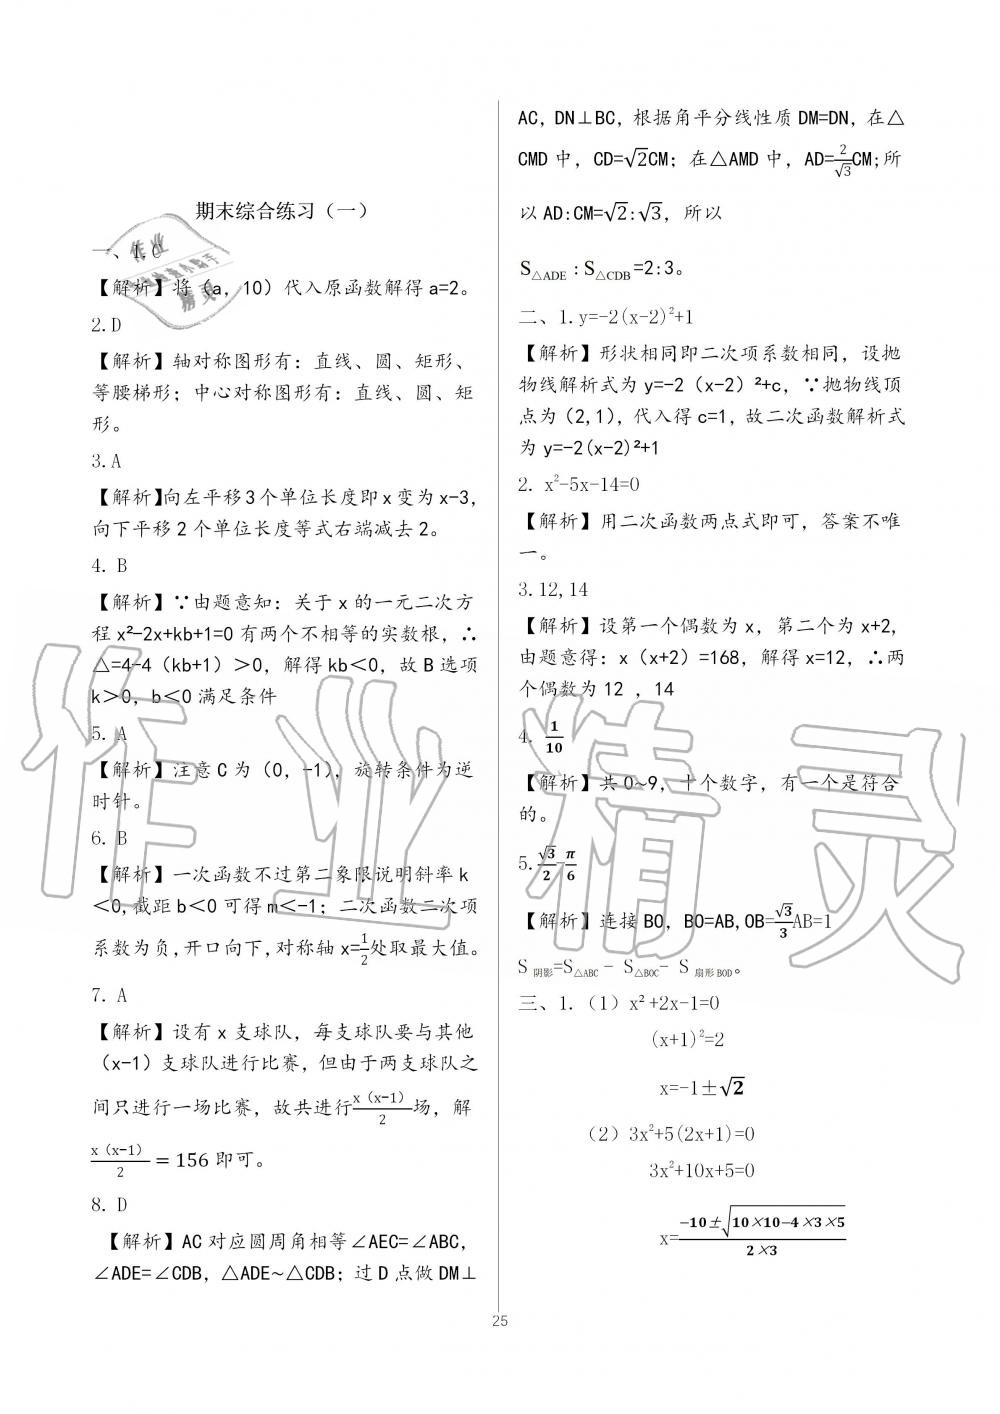 期末综合练习（一）
一、1.C
【解析】将（a，10）代入原函数解得 a=2。
2.D
【解析】轴对称图形有：直线、圆、矩形、
等腰梯形；中心对称图形有：直线、圆、矩
形。
3.A
【解析】向左平移 3 个单位长度即 x 变为 x-3，
向下平移 2 个单位长度等式右端减去 2。
4. B
【解析】∵由题意知：关于 x 的一元二次方
程 x²-2x+kb+1=0 有两个不相等的实数根，∴
△=4-4（kb+1）＞0，解得 kb＜0，故 B 选项
k＞0，b＜0 满足条件
5. A
【解析】注意 C 为（0，-1），旋转条件为逆
时针。
6. B
【解析】一次函数不过第二象限说明斜率 k
＜0,截距 b＜0 可得 m＜-1；二次函数二次项
系数为负,开口向下,对称轴 x=1/2处取最大值。
7. A
【解析】设有 x 支球队，每支球队要与其他
（x-1）支球队进行比赛，但由于两支球队之
间只进行一场比赛，故共进行x（x-1）/2场，解
x（x-1）/2 = 156 即可。
8. D
【解析】AC 对应圆周角相等∠AEC=∠ABC，
∠ADE=∠CDB，△ADE~△CDB；过 D 点做 DM⊥
AC，DN⊥BC，根据角平分线性质 DM=DN，在△
CMD 中，CD=√2CM；在△AMD 中，AD=2/√3CM;所
以 AD:CM=√2:√3，所以
S△ADE：S△CDB=2:3。
二、1.y=-2(x-2)²+1
【解析】形状相同即二次项系数相同，设抛
物线解析式为 y=-2（x-2）²+c，∵抛物线顶
点为（2,1），代入得 c=1，故二次函数解析式
为 y=-2(x-2)²+1
2. x²-5x-14=0
【解析】用二次函数两点式即可，答案不唯
一。
3.12,14
【解析】设第一个偶数为 x，第二个为 x+2,
由题意得：x（x+2）=168，解得 x=12，∴两
个偶数为 12 ，14
4. 1/10
【解析】共 0~9，十个数字，有一个是符合
的。
5.√3/2-π/6
【解析】连接 BO，BO=AB,OB=√3/3AB=1
S 阴影=S△ABC - S△BOC- S 扇形 BOD。
三、1.（1）x²+2x-1=0
(x+1)²=2
x=-1±√2
（2）3x²+5(2x+1)=0
3x²+10x+5=0
x=−10±√10×10−4×3×5/2×3
25
作业精灵